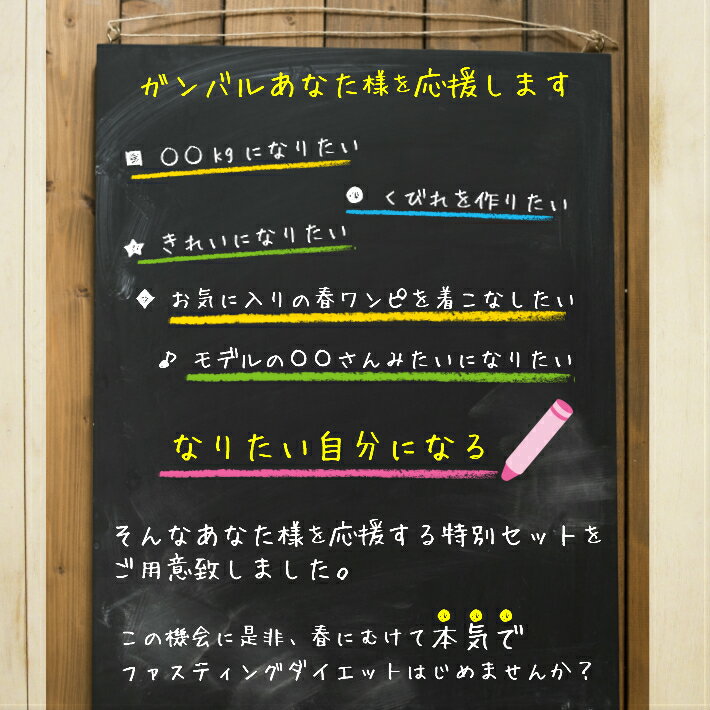 ガンバルあなた様を応援します
〇〇kgになりたい
くびれを作りたい
きれいになりたい
お気に入りの春ワンピを着こなしたい
♪ モデルの〇〇さんみたいになりたい
なりたい自分になる
そんなあなた様を応援する特別セットを
ご用意致しました。
この機会に是非、春にむけて本気で
ファスティングダイエットはじめませんか？